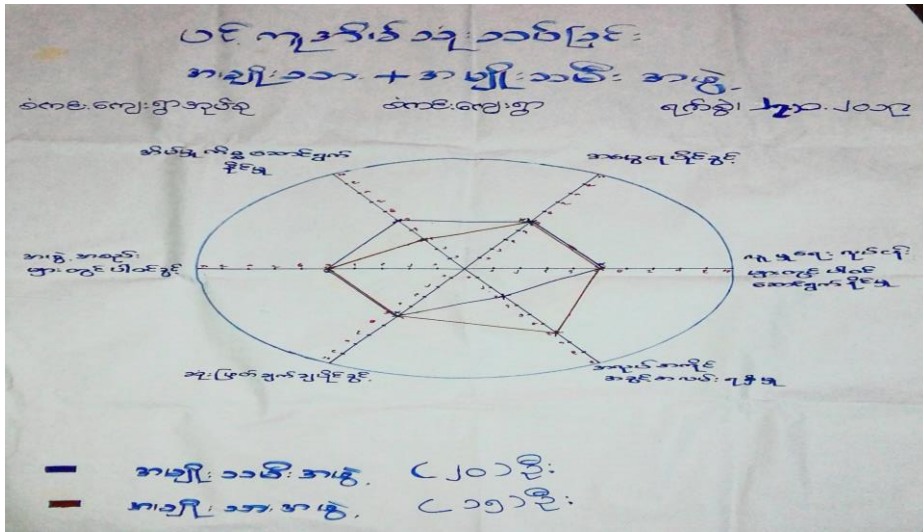 ပင့်ကူအိမ်သုံးသပ်ခြင်း
အမျိုးသား + အမျိုးသမီး အဖွဲ့
စံကင်းကျေးရွာအုပ်စု စံကင်းကျေးရွာ ရက်စွဲ၊
အိမ်မှုကိစ္စဆောင်ရွက်
နိုင်မှု
အမွေရပိုင်ခွင့်
အဖွဲ့အစည်း
များတွင်ပါဝင်ခွင့်
လူမှုရေးလုပ်ငန်း
များတွင်ပါဝင်
ဆောင်ရွက်နိုင်မှု
ဆုံးဖြတ်ချက်ချပိုင်ခွင့်
အလုပ်အကိုင်
အခွင့်အလမ်းရရှိမှု
အမျိုးသမီးအဖွဲ့ (၂၀) ဦး
အမျိုးသားအဖွဲ့ (၁၅) ဦး